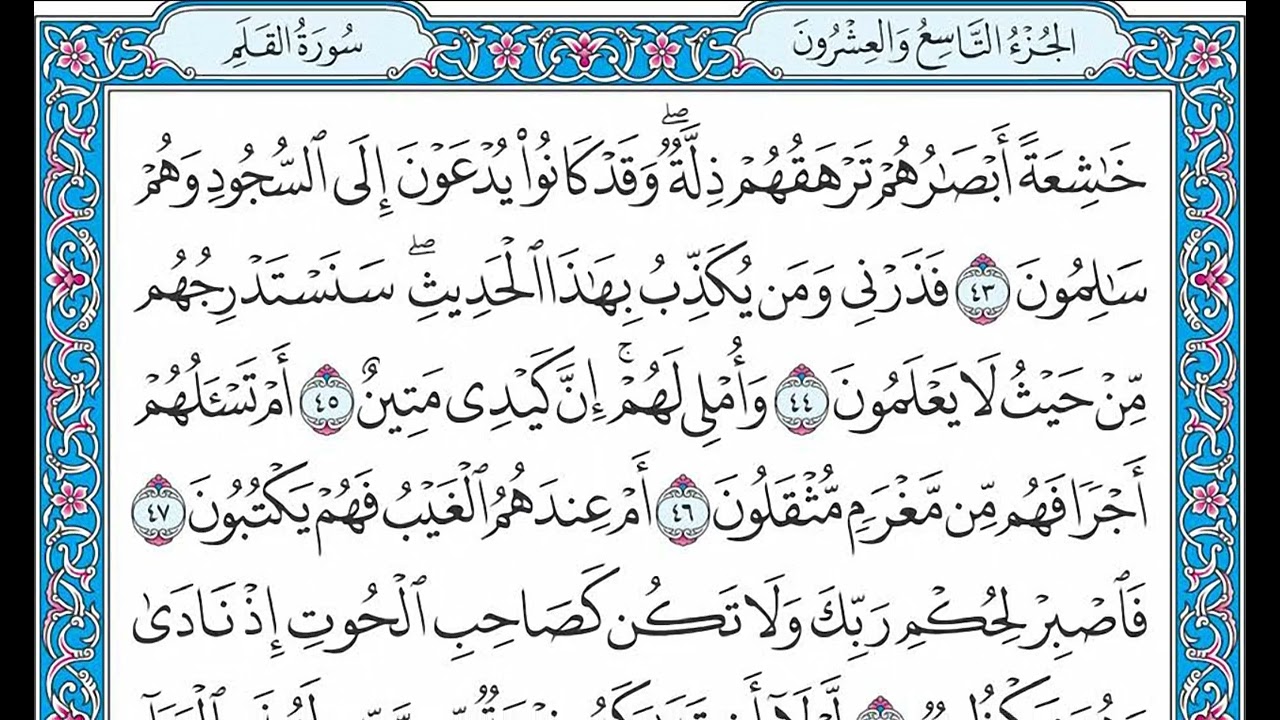 الجُزْءُ التَّاسِعُ وَالعِشْرُونَ
سُورَةُ القَلَمِ
خَٰشِعَةً أَبْصَٰرُهُمْ تَرْهَقُهُمْ ذِلَّةٌۖ وَقَدْ كَانُوا۟ يُدْعَوْنَ إِلَى ٱلسُّجُودِ وَهُمْ
سَٰلِمُونَ ٤٣ فَذَرْنِى وَمَن يُكَذِّبُ بِهَٰذَا ٱلْحَدِيثِۖ سَنَسْتَدْرِجُهُم
مِّنْ حَيْثُ لَا يَعْلَمُونَ ٤٤ وَأُمْلِى لَهُمْۚ إِنَّ كَيْدِى مَتِينٌ ٤٥ أَمْ تَسْـَٔلُهُمْ
أَجْرًا فَهُم مِّن مَّغْرَمٍ مُّثْقَلُونَ ٤٦ أَمْ عِندَهُمُ ٱلْغَيْبُ فَهُمْ يَكْتُبُونَ ٤٧
فَٱصْبِرْ لِحُكْمِ رَبِّكَ وَلَا تَكُن كَصَاحِبِ ٱلْحُوتِ إِذْ نَادَىٰ